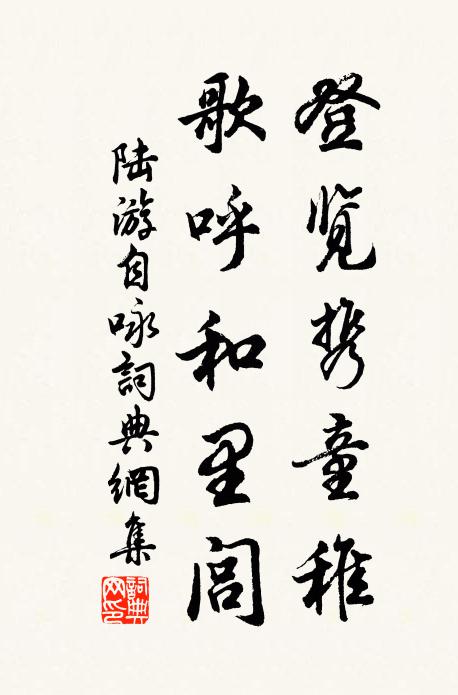 登览携童稚
歌呼和里闾
陆游自咏詞典網集
詞典网印